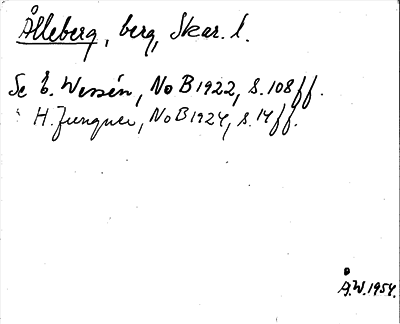 Ålleberg, berg, Skar. l.
Se E. Wessén, NoB 1922, s. 108 ff.
" H. Jungner, NoB 1924, s. 14 ff.
Å.W. 1954.